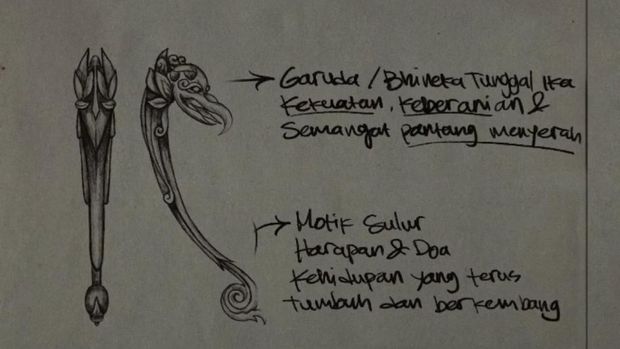 Garuda / Bhineka Tunggal Ika
Kekuatan, Keberanian &
Semangat pantang menyerah
Motif Sulur
Harapan & Doa
Kehidupan yang terus
tumbuh dan berkembang